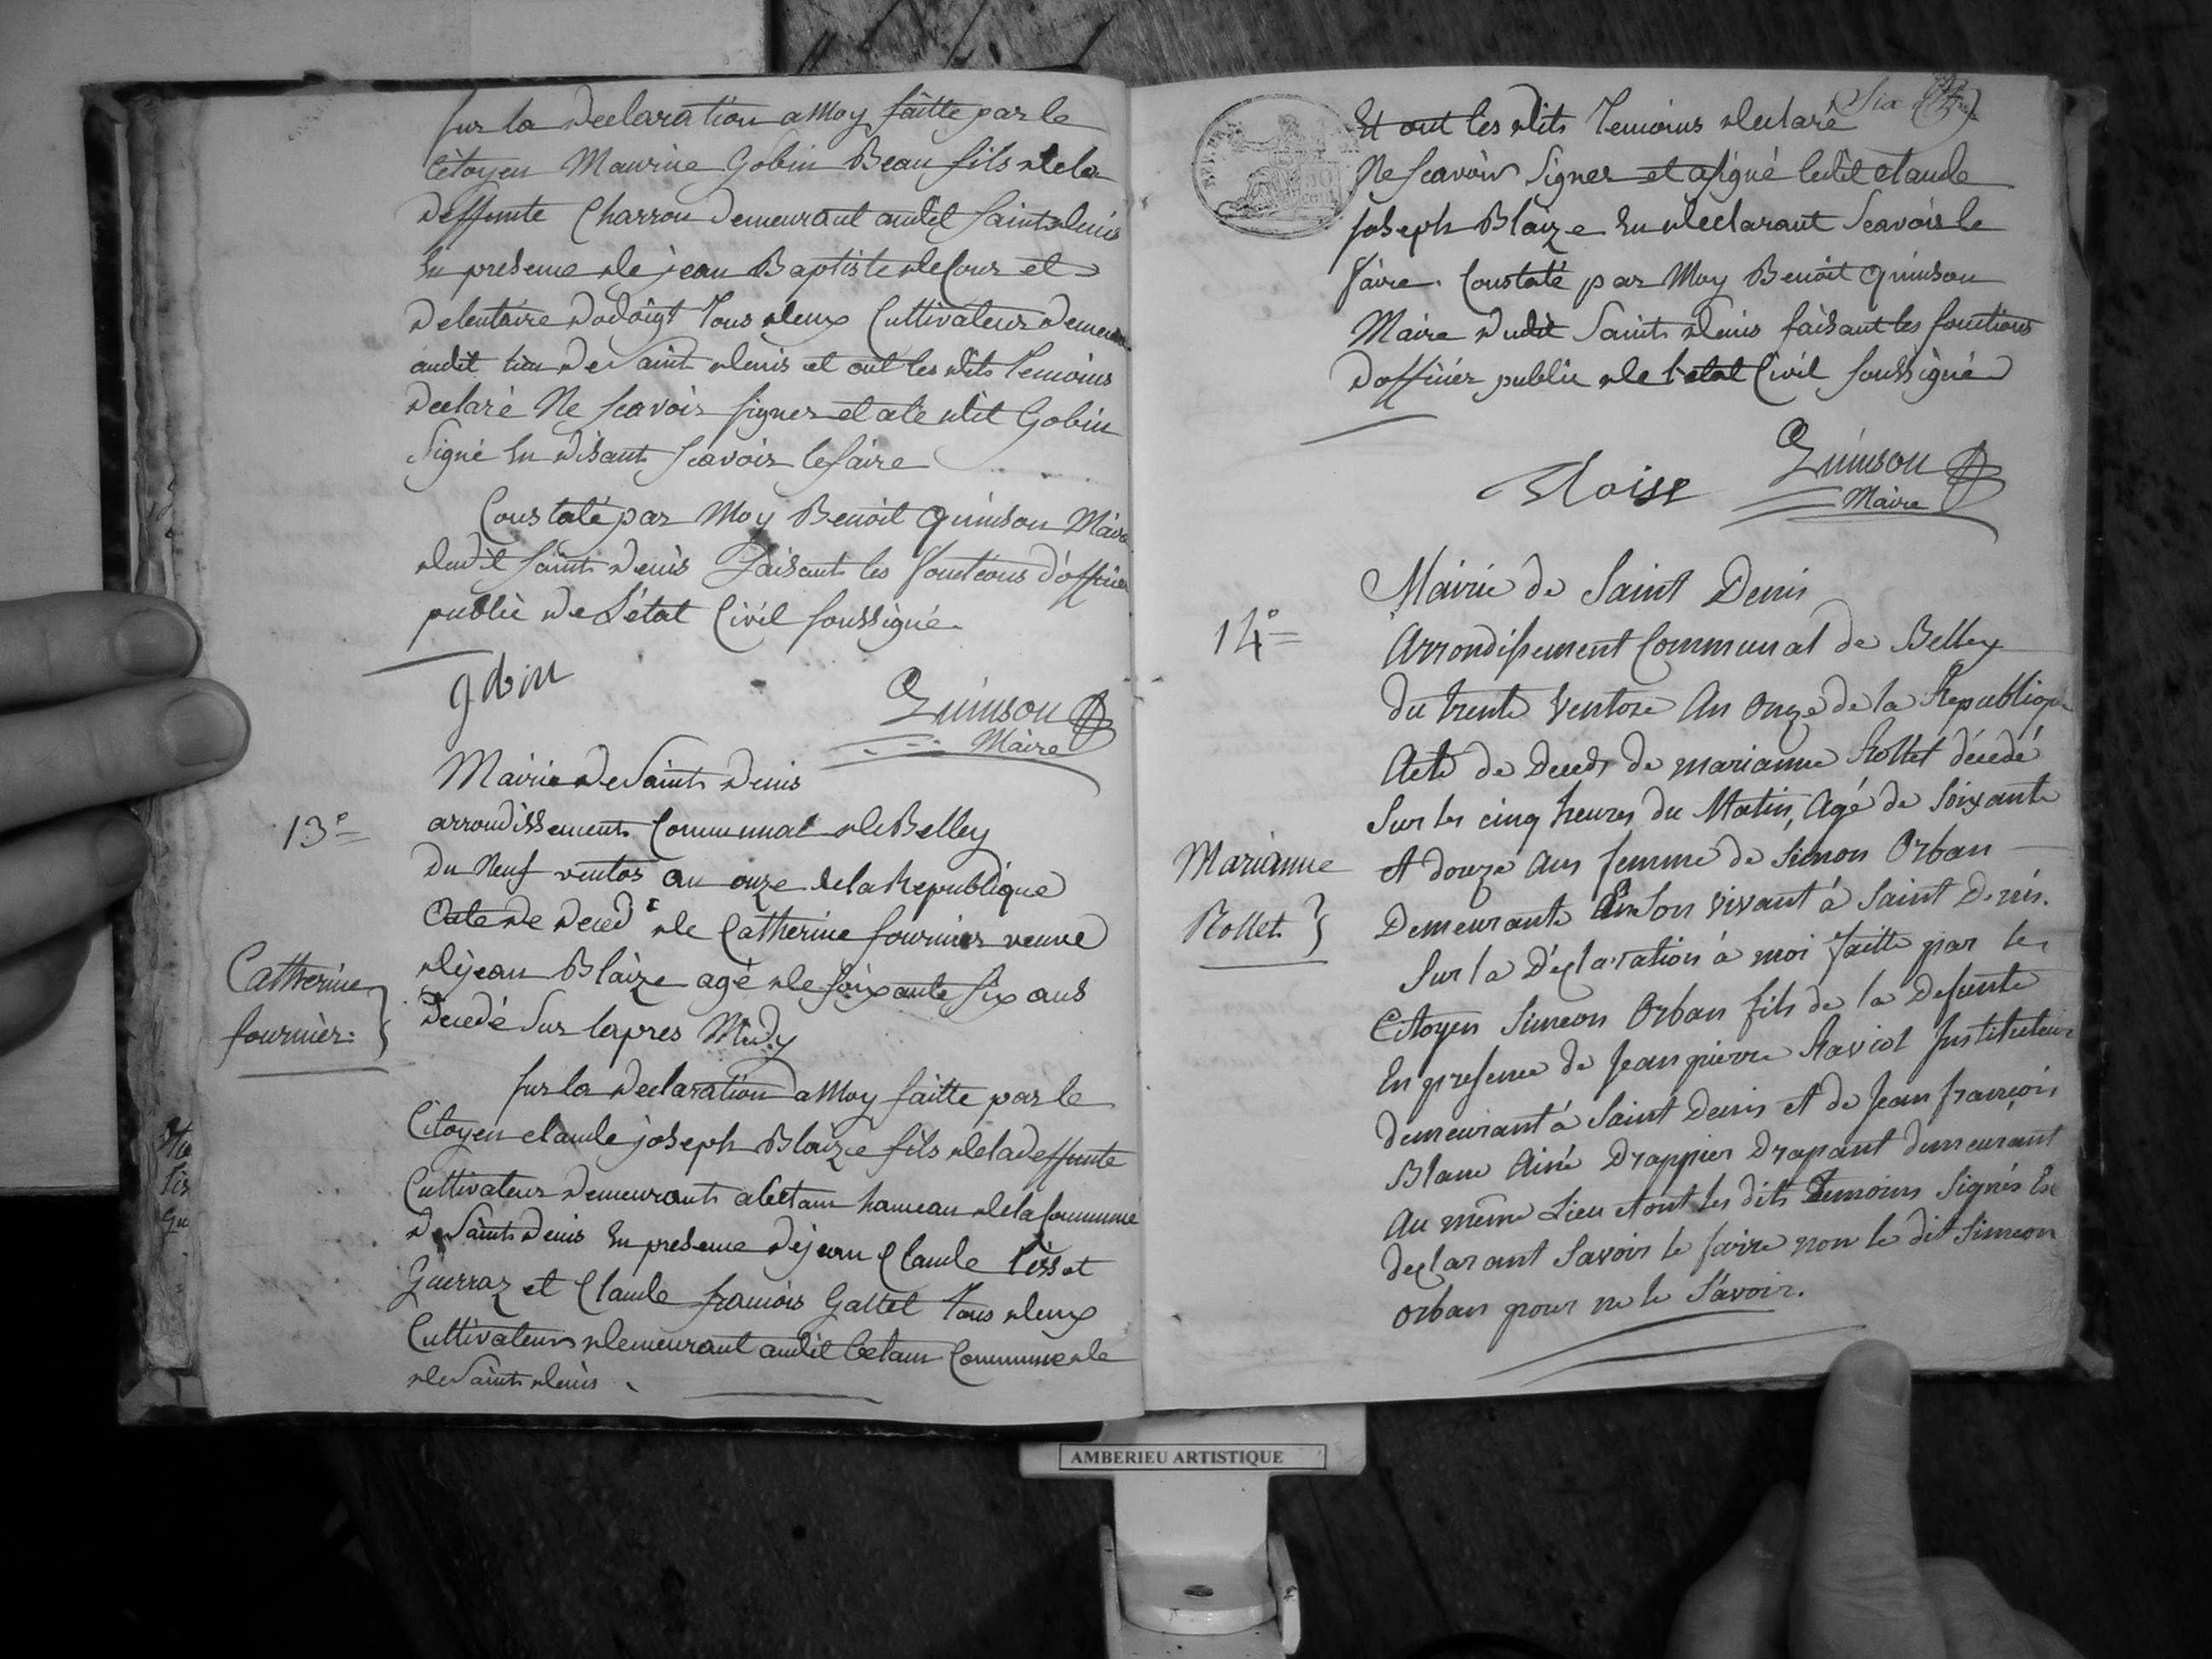 Sur la Declaration a Moy faitte par le
Citoyen Maurice Gobin Beau fils de la
deffunte Charron Demeurant audit Saint denis
En presence de jean Baptiste et
De Tous deux Cultivateurs
audit lieu de Saint denis et ont les dits Temoins
Declaré Ne scavoir signer et a le dit Gobin
Signé En Disant scavoir le faire
Constaté par Moy Benoit Quinson Maire
dudit Saint Denis Faisant les Fonctions d'officier
public de L'état Civil soussigné
gobin
Quinson
Maire
Mairie de Saint Denis
13e
arrondissement Communal de Belley
Du Neuf ventos an onze de la Republique
Acte De deced de Catherine fournier veuve
Catherine
fournier
de jean Blaize agé de soixante six ans
Decedé Sur lapres Midy
Sur la declaration a Moy faitte par le
Citoyen claude joseph Blaize fils de la deffunte
Cultivateur Demeurant a hameau de la Commune
De Saint Denis En presence De jean Claude Tisset
Guerraz et Claude francois Gattel Tous deux
Cultivateurs demeurant audit Commune de
de Saint denis
Six
Et ont les dits Temoins declaré
Ne scavoir Signer et a signé ledit claude
joseph Blaize En declarant Scavoir le
faire. Constaté par Moy Benoit Quinson
Maire dudit Saint denis faisant les fonctions
D'officier public de l'etat Civil soussigné
Bloise
Quinson
Maire
Mairie de Saint Denis
14e
Arrondissement Communal de Belley
du trente Ventose An Onze de la Republique
Acte de Deceds de marianne Rollet décédé
Sur les cinq heures du Matin, Agé de Soixante
Marianne
Rollet
et douze Ans femme de Simon Orban
Demeurante En Son vivant à Saint Denis.
Sur la Déclaration à moi faitte par le
Citoyen Simeon Orban fils de la Defunte
En presence de Jean pierre Raviol Instituteur
demeurant à Saint Denis et de Jean françois
Blanc Ainé Drappier Drapant demeurant
Au même Lieu et ont les dits Temoins Signés En
declarant Savoir le faire non le dit Simeon
orban pour ne le Savoir.
AMBERIEU ARTISTIQUE